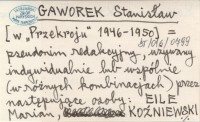 GAWOREK Stanisław
[w „Przekroju" 1946-1950] =
pseudonim redakcyjny, używany
indywidualnie lub wspólnie
(w różnych kombinacjach) przez
następujące osoby: EILE
Marian, KOŹNIEWSKI